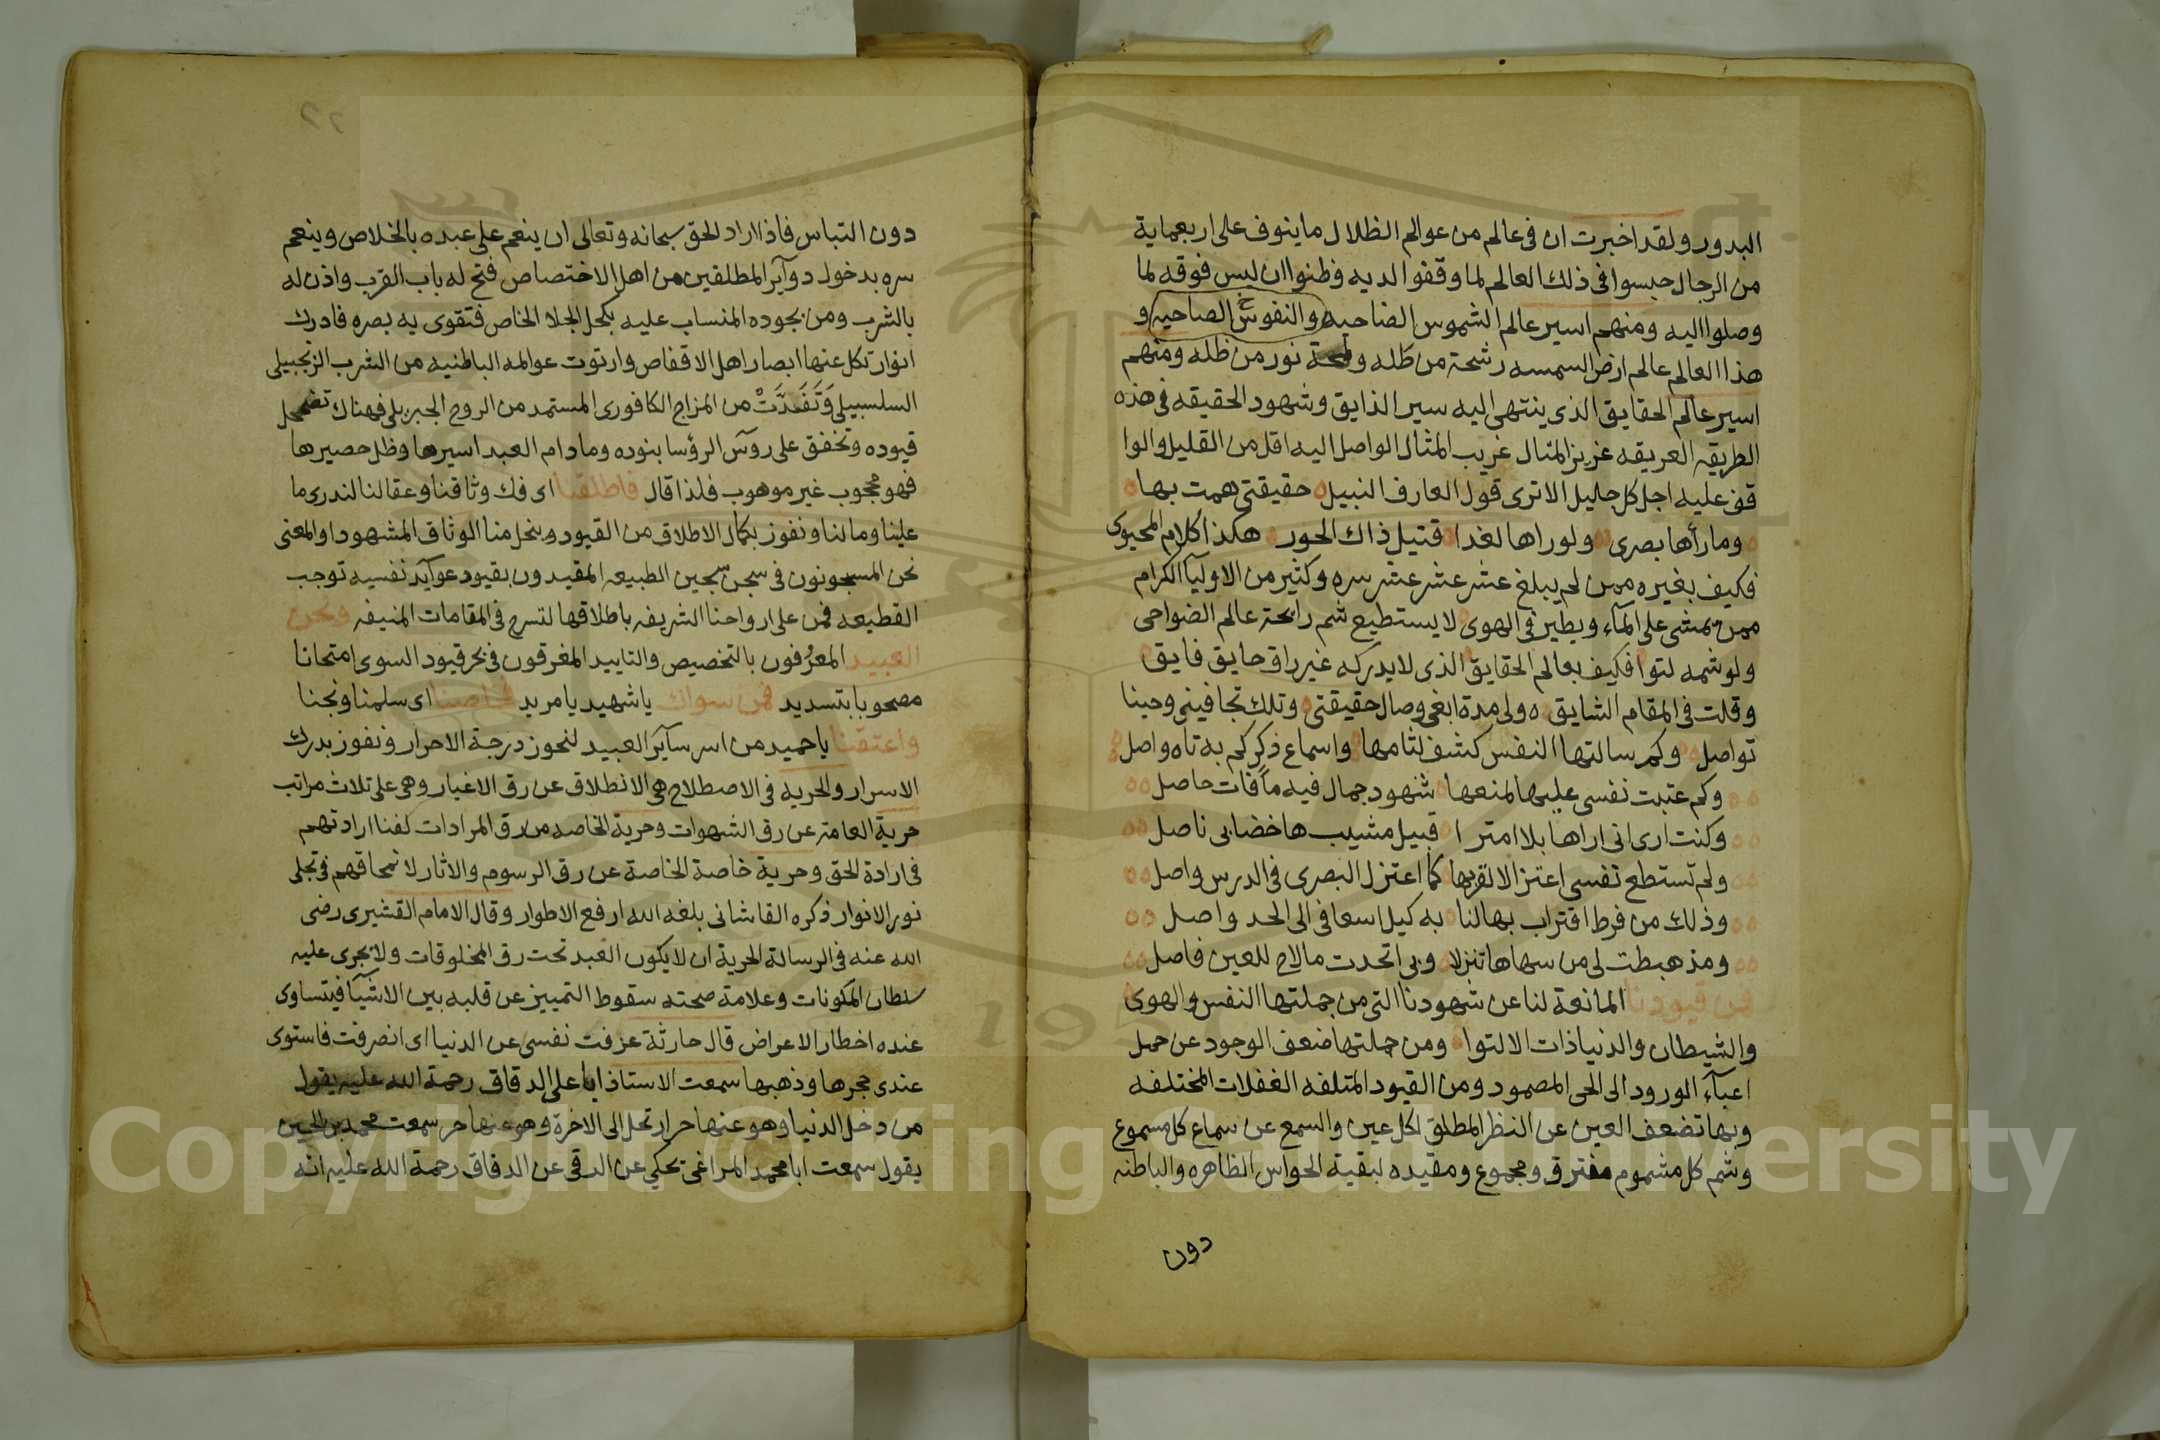 البدور ولقد اخبرت ان فى عالم من عوالم الظلال ما ينوف على اربعماية
من الرجال حبسوا فى ذلك العالم لما وقفوا لديه وظنوا ان ليس فوقه لما
وصلوا اليه ومنهم اسير عالم الشموس الضاحيه والنفوس الصاحيه و
هذا العالم عالم ارض السمسمه رشحة من طله ولمحة نور من ظله ومنهم
اسير عالم الحقايق الذى ينتهى اليه سير الذايق وشهود الحقيقه فى هذه
الطريقه العريقه عزيز المنال غريب المثال الواصل اليه اقل من القليل والوا
قف عليه اجل كل جليل الا ترى قول العارف النبيل حقيقتى همت بها
وما رأها بصرى ولو راها لغدا قتيل ذاك الحور هكذا كلام المحيوى
فكيف بغيره ممن لم يبلغ عشر عشر عشر سره وكثير من الاوليآ الكرام
ممن يمشى على المآء ويطير فى الهوى لا يستطيع شم رائحة عالم الضواحى
ولو شمه لتوا فكيف بعالم الحقايق الذى لا يدركه غير راق حايق فايق
وقلت فى المقام الشايق ولى مدة ابغى وصال حقيقتى وتلك تجافينى وحينا
تواصل وكم سالتها النفس كشف لثامها واسماع ذكر كم به تاه واصل
وكم عتبت نفسى عليها لمنعها شهود جمال فيه ما فات حاصل
وكنت ارى انى اراها بلا امترا قبيل مشيب ها خضابى ناصل
ولم تستطع نفسى اعتزالا لقربها كما اعتزل البصرى فى الدرس واصل
وذلك من فرط اقتراب بها لنا به كيل اسعافى الى الحد واصل
ومذ هبطت لى من سهاها تنزلا وبى اتحدت مالاح للعين فاصل
من قيودنا المانعة لنا عن شهودنا التى من جملتها النفس والهوى
والشيطان والدنيا ذات الالتوا ومن جملتها ضعف الوجود عن حمل
اعبآء الورود الى الحى المصمود ومن القيود المتلفه الغفلات المختلفه
وبها تضعف العين عن النظر المطلق لكل عين والسمع عن سماع كل مسموع
وشم كل مشموم مفترق ومجموع ومقيده لبقية الحواس الظاهره والباطنه
دون
دون التباس فاذا اراد الحق سبحانه وتعالى ان ينعم على عبده بالخلاص وينعم
سره بدخول دوآير المطلقين من اهل الاختصاص فتح له باب القرب واذن له
بالشرب ومن بجوده المنساب عليه بكحل الجلا الخاص فتقوى به بصره فادرك
انوار تكل عنها ابصار اهل الاقفاص وارتوت عوالمه الباطنيه من الشرب الزنجبيلى
السلسبيلى وتفدت من المزاج الكافورى المستمد من الروح الجبريلى فهناك تضمحل
قيوده وتخفق على روس الرؤسا بنوده وما دام العبد اسيرها وظل حصيرها
فهو محجوب غير موهوب فلذا قال فاطلقنا اى فك وثاقنا وعقالنا لندرى ما
علينا وما لنا ونفوز بكمال الاطلاق من القيود وينحل منا الوثاق المشهود او المعنى
نحن المسجونون فى سجن سجين الطبيعه المقيدون بقيود عوآيد نفسيه توجب
القطيعه فمن على ارواحنا الشريفه باطلاقها لتسرح فى المقامات المنيفه ونحن
العبيد المعرفون بالتخصيص والتاييد المغرقون فى بحر قيود السوى امتحانا
مصحوبا بتسديد فمن سواك يا شهيد يا مريد لخلاصنا اى سلمنا ونجنا
واعتقنا يا حميد من اسر ساير العبيد لنحوز درجة الاحرار ونفوز بدرك
الاسرار والحريه فى الاصطلاح هى الانطلاق عن رق الاغيار وهى على ثلاث مراتب
حرية العامة عن رق الشهوات وحرية الخاصه من رق المرادات لفنا ارادتهم
فى ارادة الحق وحرية خاصة الخاصة عن رق الرسوم والاثار لانمحاقهم فى تجلى
نور الانوار ذكره القاشانى بلغه الله ارفع الاطوار وقال الامام القشيرى رضى
الله عنه فى الرسالة الحرية ان لا يكون العبد تحت رق المخلوقات ولا يجرى عليه
سلطان المكونات وعلامة صحته سقوط التمييز عن قلبه بين الاشيآ فيتساوى
عنده اخطار الاعراض قال حارثة عزفت نفسى عن الدنيا اى انصرفت فاستوى
عندى حجرها وذهبها سمعت الاستاذ ابا على الدقاق رحمة الله عليه يقول
من دخل الدنيا وهو عنها حرا رتحل الى الاخرة وهو عنها حر سمعت محمد بن الحسين
يقول سمعت ابا محمد المراغى يحكي عن الدقى عن الدقاق رحمة الله عليه انه
Copyright © King Saud University
1957